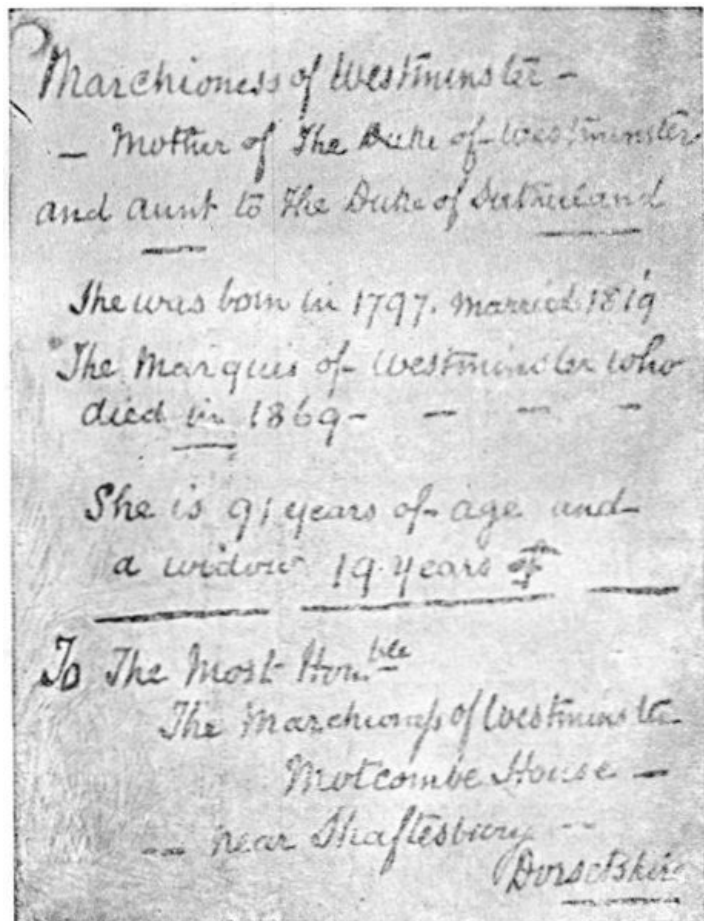 Marchioness of Westminster -
- Mother of The Duke of Westminster
and aunt to the Duke of Sutherland
She was born in 1797. Married 1819
The Marquis of Westminster who
died in 1869 - - - -
She is 91 years of age and
a widow 19 years
To The Most Hon.ble
The Marchioness of Westminster
Motcombe House -
-- near Shaftesbury --
Dorsetshire